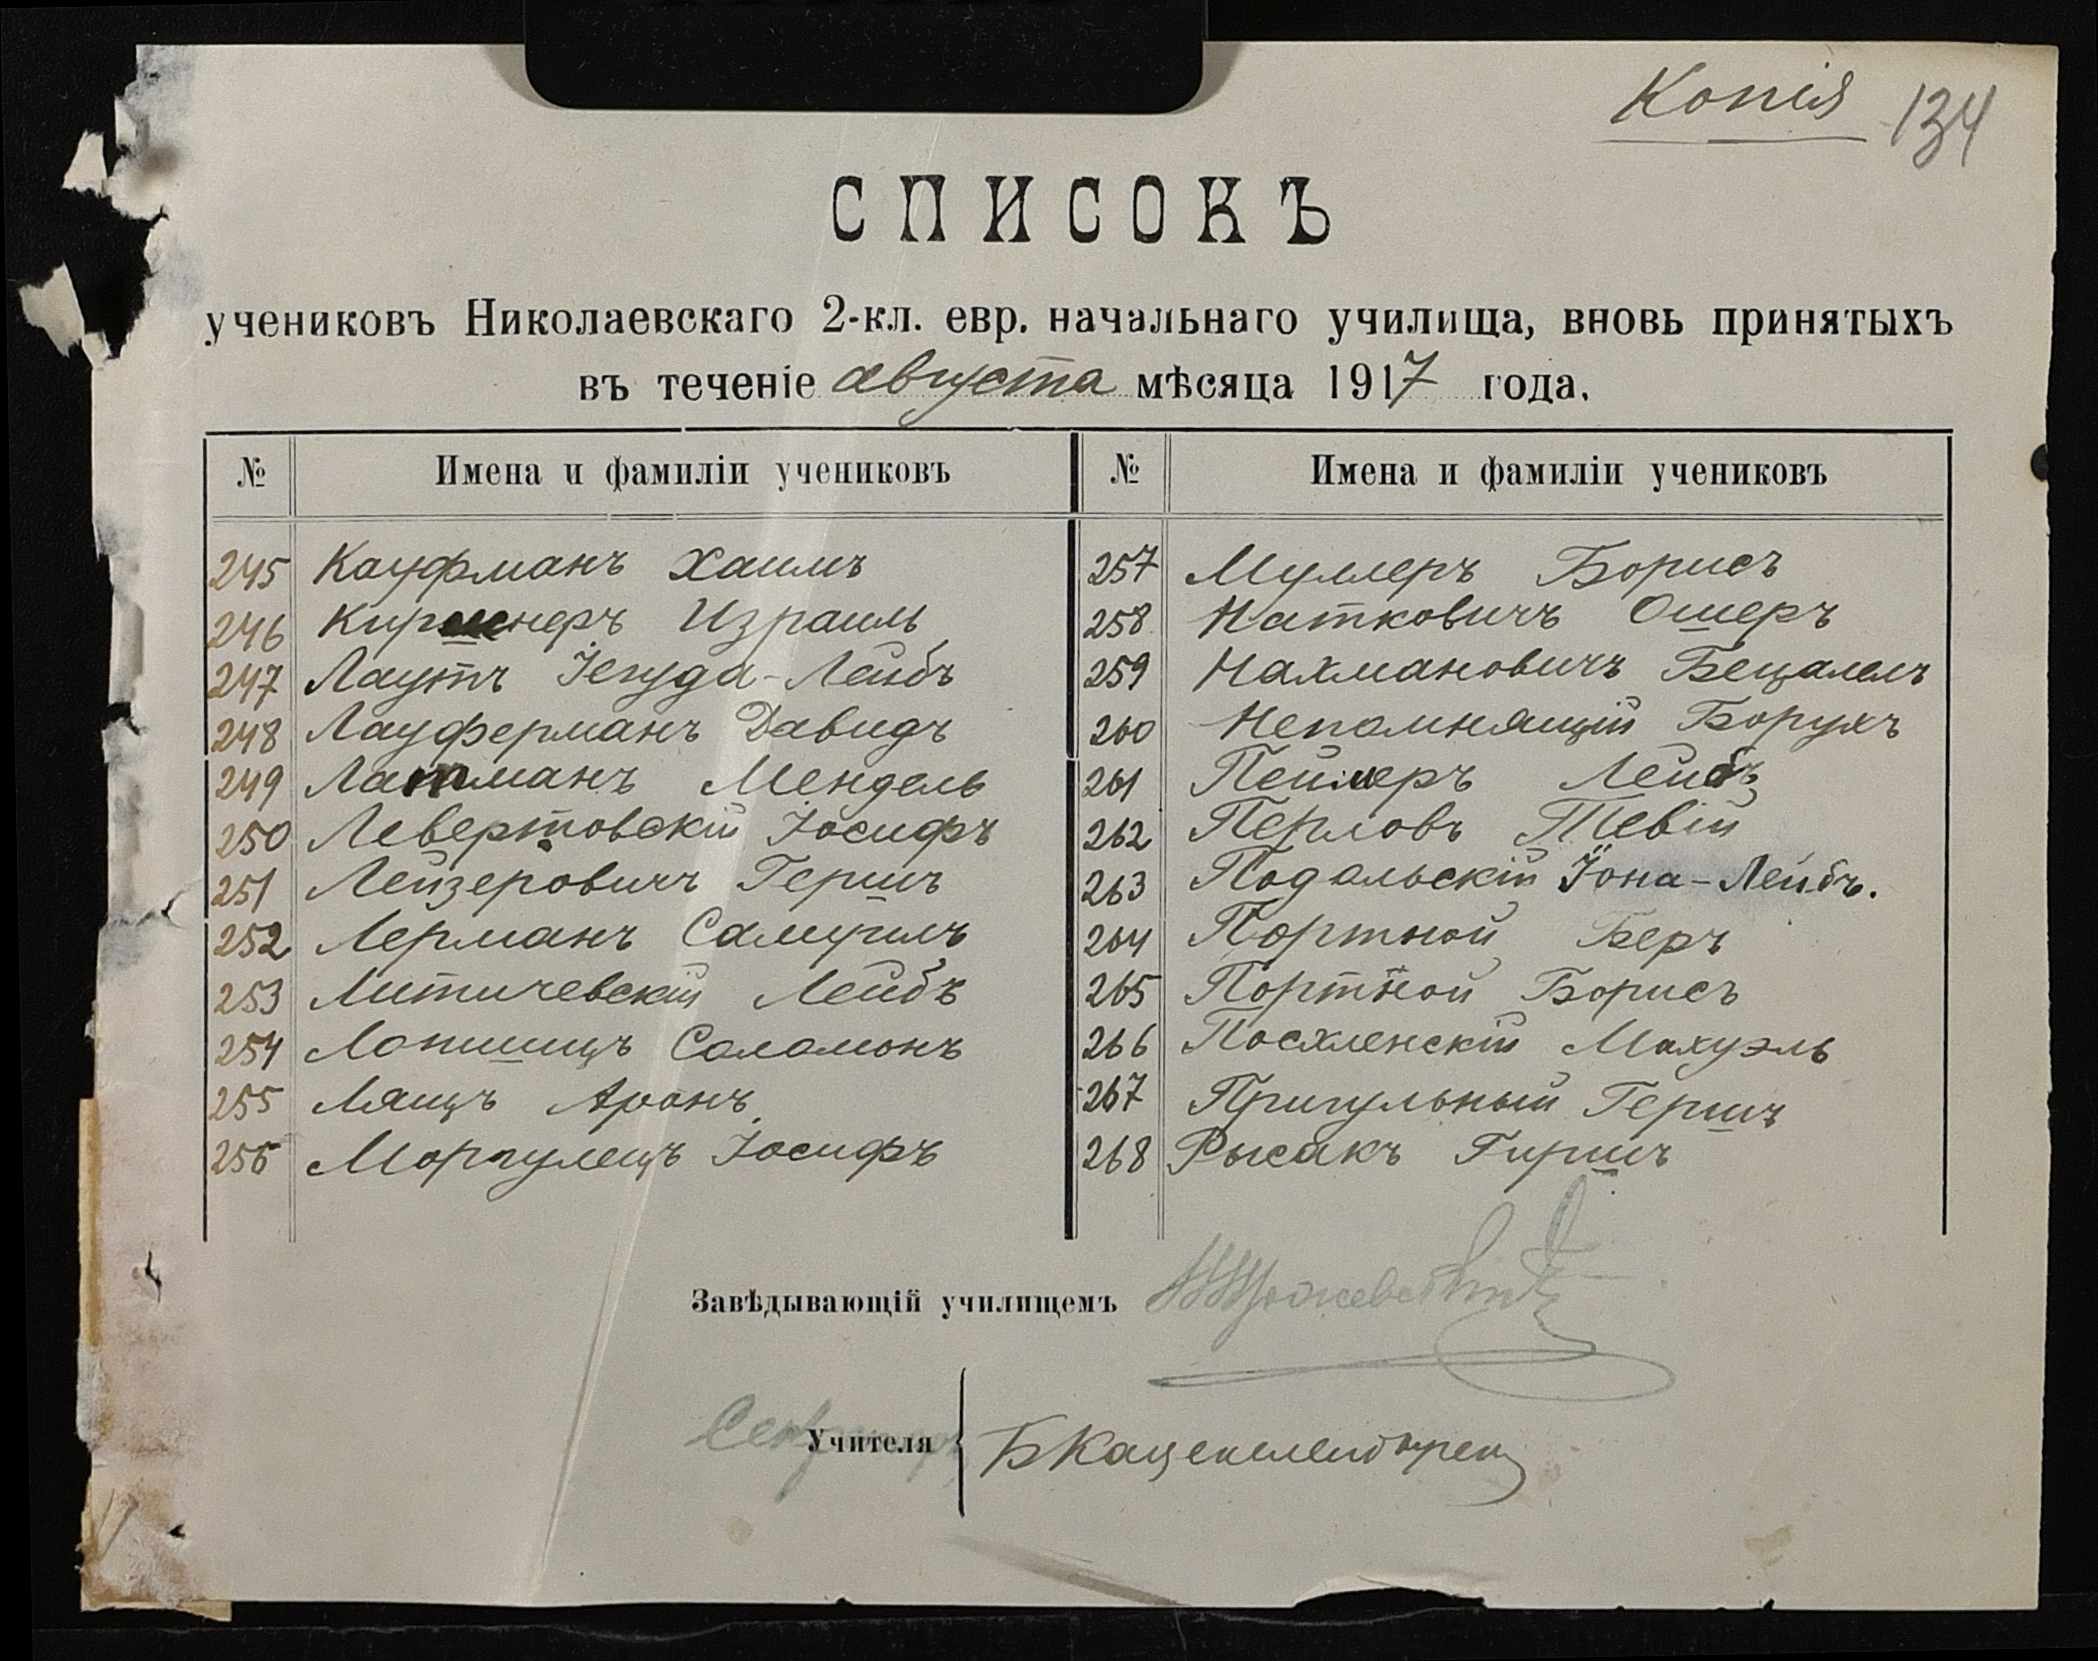 Копія 134
СПИСОКЪ
учениковъ Николаевскаго 2-кл. евр. начальнаго училища, вновь принятыхъ
въ теченіе августа мѣсяца 1917 года.
№ Имена и фамиліи учениковъ № Имена и фамиліи учениковъ
245 Кауфманъ Хаимъ
246 Киршнеръ Израиль
247 Лаутъ Іегуда-Лейбъ
248 Лауферманъ Давидъ
249 Латманъ Мендель
250 Левертовскій Іосифъ
251 Лейзеровичъ Гершъ
252 Лерманъ Самуилъ
253 Литичевскій Лейбъ
254 Лопшицъ Соломонъ
255 Лящъ Аронъ
256 Моргулецъ Іосифъ
257 Муллеръ Борисъ
258 Натковичъ Ошеръ
259 Нахмановичъ Бецалелъ
260 Непомнящій Борухъ
261 Пеймеръ Лейбъ
262 Перловъ Тевій
263 Подольскій Іона-Лейбъ.
264 Портной Беръ
265 Портной Борисъ
266 Посхленскій Махуэль
267 Пригульный Гершъ
268 Рысакъ Гиршъ
Завѣдывающій училищемъ
Учителя